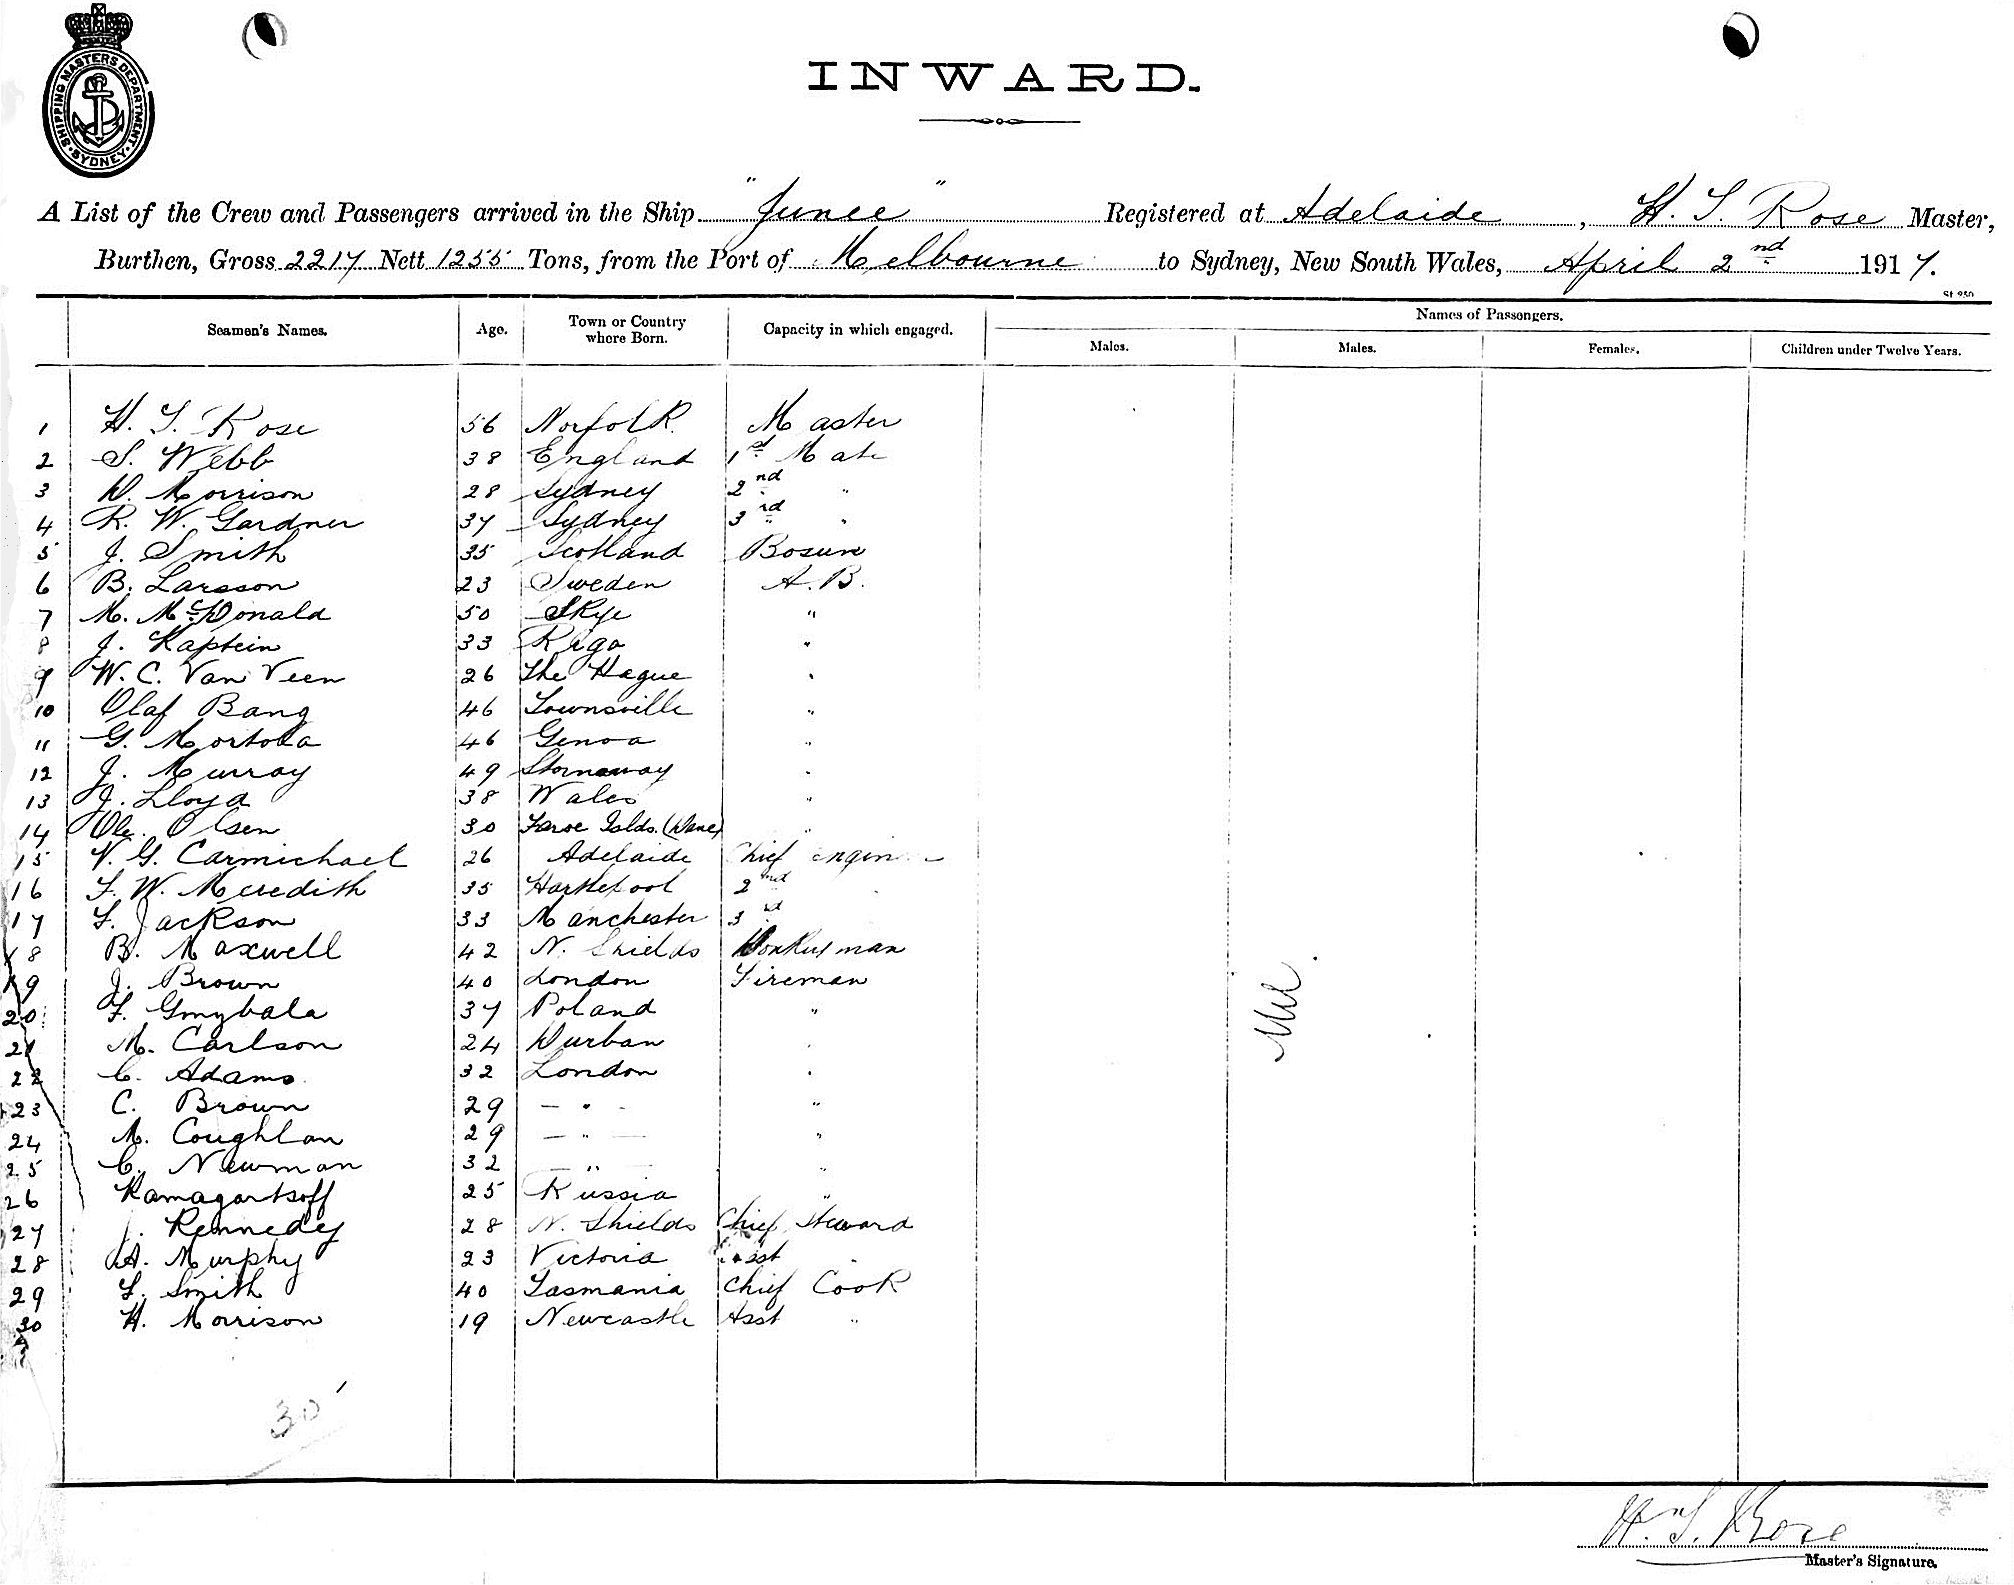 SHIPPING MASTERS DEPARTMENT
SYDNEY
INWARD.
A List of the Crew and Passengers arrived in the Ship "Junee" Registered at Adelaide, H. S. Rose Master,
Burthen, Gross 2217 Nett 1255 Tons, from the Port of Melbourne to Sydney, New South Wales, April 2nd 1917.
St 950
Seamen's Names. Age. Town or Country where Born. Capacity in which engaged. Names of Passengers.
Males. Males. Females. Children under Twelve Years.
1 H. S. Rose 56 Norfolk. Master
2 S. Webb 38 England 1st Mate
3 D. Morrison 28 Sydney 2nd "
4 R. W. Gardner 37 Sydney 3rd "
5 J. Smith 35 Scotland Bosun
6 B. Larsson 23 Sweden A.B.
7 M. McDonald 50 Skye "
8 J. Kaptein 33 Riga "
9 W. C. Van Veen 26 The Hague "
10 Olaf Bang 46 Townsville "
11 G. Mortola 46 Genoa "
12 J. Murray 49 Stornaway "
13 J. Lloyd 38 Wales "
14 Ole Olsen 30 Faroe Islds. (Dane) "
15 V. G. Carmichael 26 Adelaide Chief Engin
16 F. W. Meredith 35 Hartlepool 2nd
17 F. Jackson 33 Manchester 3rd
18 B. Maxwell 42 N. Shields Donkeyman
19 J. Brown 40 London Fireman
20 F. Gmybala 37 Poland "
21 M. Carlson 24 Durban "
22 C. Adams 32 London "
23 C. Brown 29 – " – "
24 M. Coughlan 29 – " – "
25 C. Newman 32 – " – "
26 Kamagartsoff 25 Russia "
27 J. Kennedy 28 N. Shields Chief Steward
28 A. Murphy 23 Victoria Asst "
29 F. Smith 40 Tasmania Chief Cook
30 H. Morrison 19 Newcastle Asst "
Nil
30
H. S. Rose
Master's Signature.